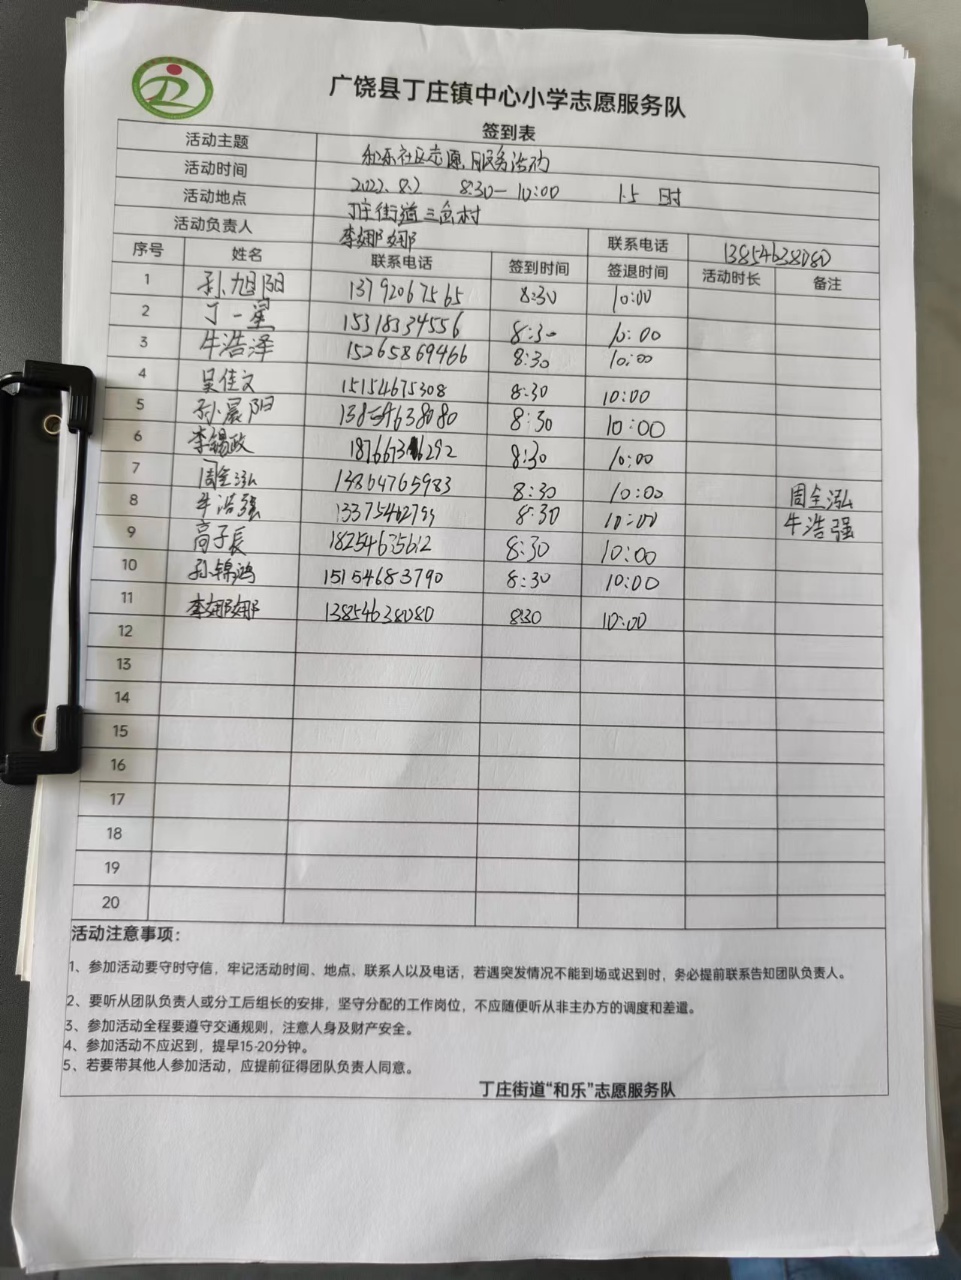 广饶县丁庄镇中心小学志愿服务队
签到表
活动主题 和乐社区志愿服务活动
活动时间 2022.8.2 8:30—10:00 1.5 时
活动地点 丁庄街道三岔村
活动负责人 李娜娜 联系电话 13854638080
序号 姓名 联系电话 签到时间 签退时间 活动时长 备注
1 孙旭阳 13792067565 8:30 10:00
2 丁一星 15318334556 8:30 10:00
3 牛浩泽 15265869466 8:30 10:00
4 吴佳文 15154675308 8:30 10:00
5 孙晨阳 13854638080 8:30 10:00
6 李锡政 8:30 10:00
7 周全泓 14864765983 8:30 10:00 周全泓
8 牛浩强 8:30 10:00 牛浩强
9 高子辰 18254635612 8:30 10:00
10 孙锦鸿 15154683790 8:30 10:00
11 李娜娜 13854638080 8:30 10:00
12
13
14
15
16
17
18
19
20
活动注意事项：
1、参加活动要守时守信，牢记活动时间、地点、联系人以及电话，若遇突发情况不能到场或迟到时，务必提前联系告知团队负责人。
2、要听从团队负责人或分工后组长的安排，坚守分配的工作岗位，不应随便听从非主办方的调度和差遣。
3、参加活动全程要遵守交通规则，注意人身及财产安全。
4、参加活动不应迟到，提早15-20分钟。
5、若要带其他人参加活动，应提前征得团队负责人同意。
丁庄街道“和乐”志愿服务队